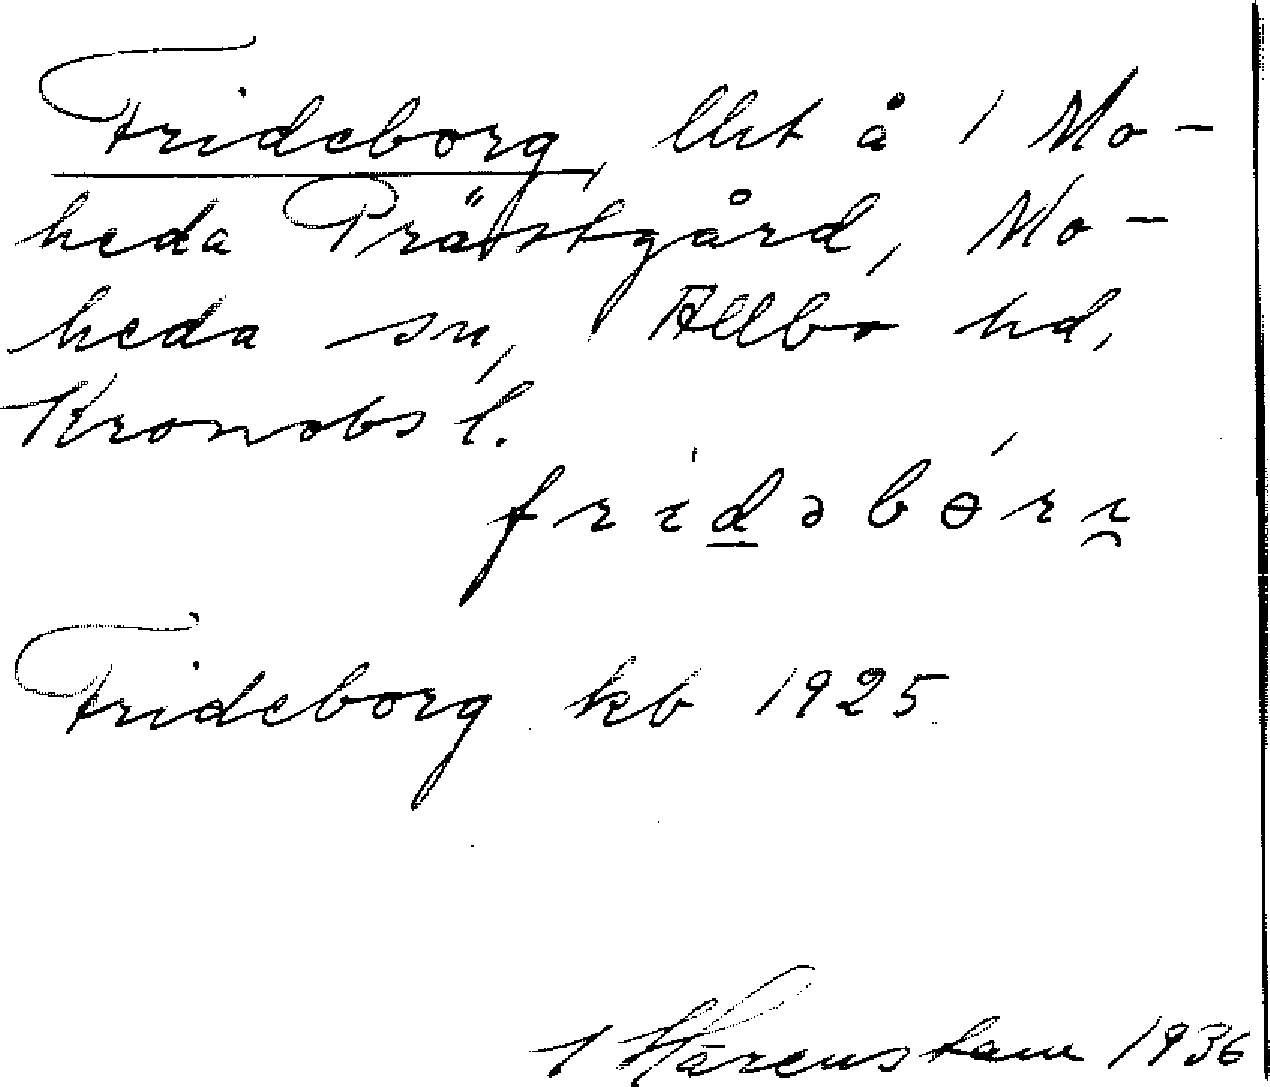 Frideborg, lht å 1 Mo-
heda Prästgård, Mo-
heda sn, Allbo hd,
Kronobs l.
fridəbɵ́ri̯
Frideborg kb 1925
Härenstam 1936